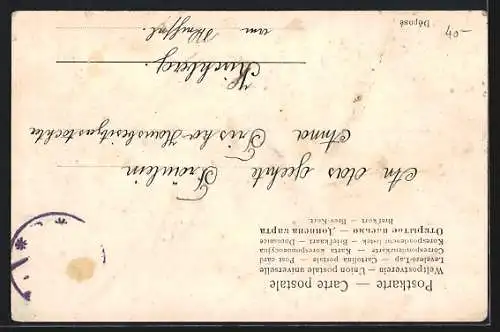 Postkarte — Carte postale
Weltpostverein — Union postale universelle
Levelező-Lap — Cartolina postale — Post card
Correspondenzkarte — Karta korespondencyjna
Korespondenční lístek — Briefkaart — Dopisnice
Открытое письмо — Дописна карта
Brefkort — Brev-Kort
An das geehrte Fräulein
Anna
Kirchberg.
am
Déposé
40-